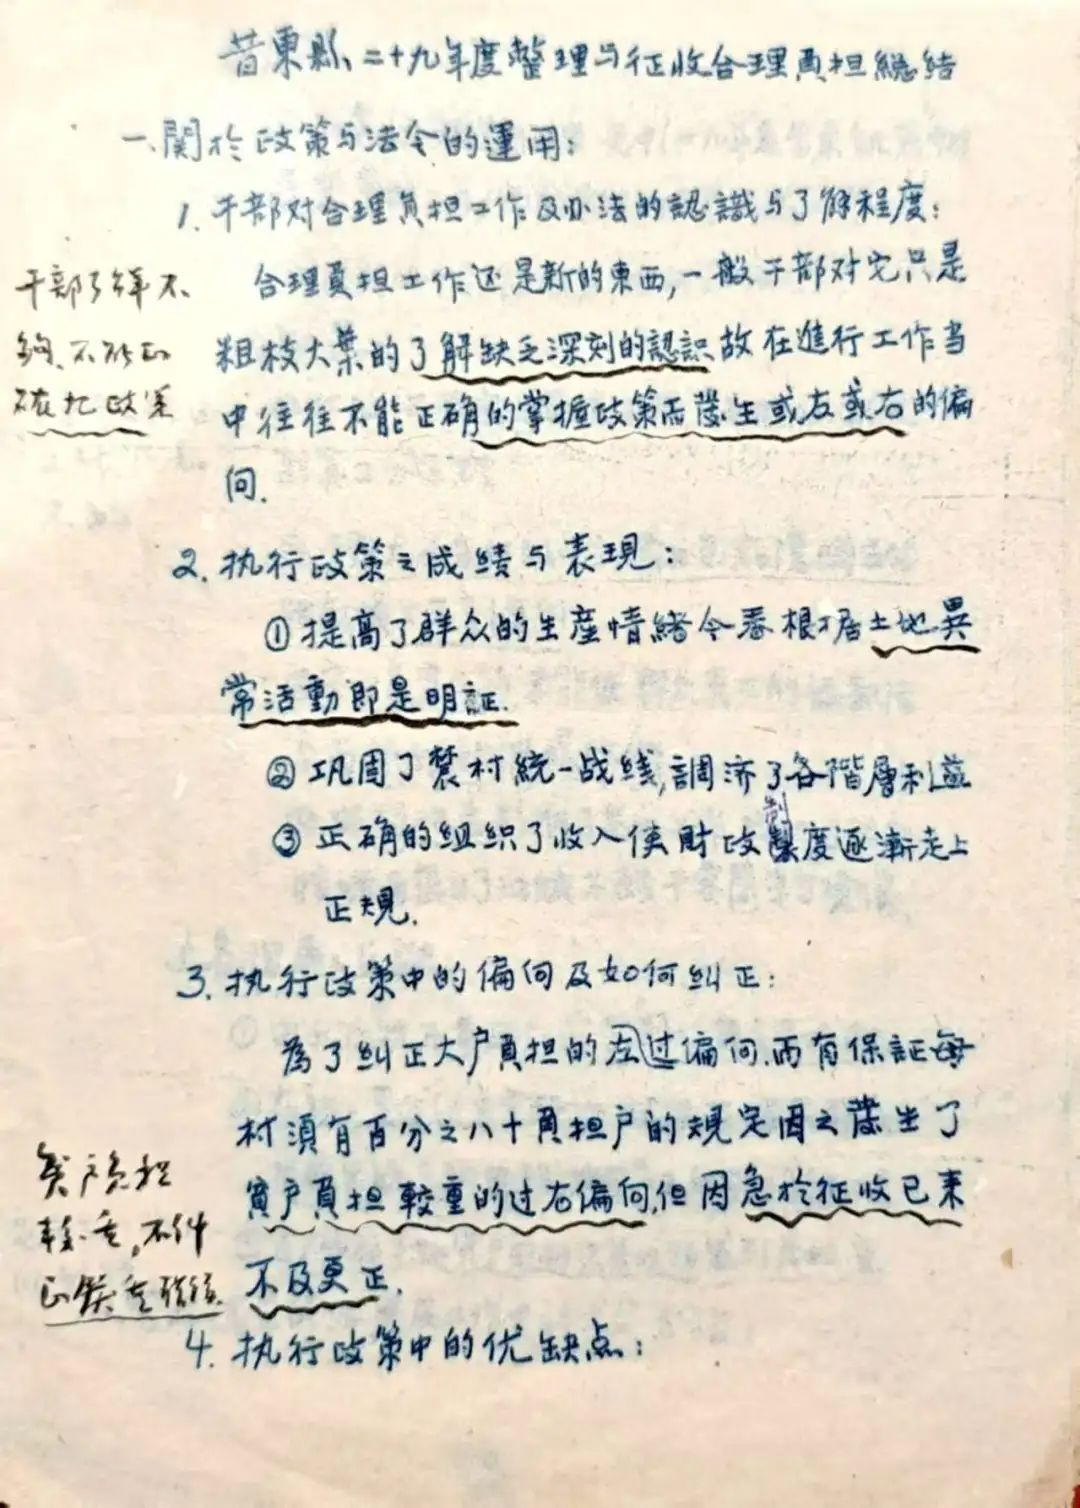 昔東縣二十九年度整理与征收合理負担總结
一、関於政策与法令的運用：
1. 干部对合理負担工作及办法的認識与了解程度：
合理負担工作还是新的東西，一般干部对它只是
粗枝大葉的了解缺乏深刻的認識故在進行工作当
中往往不能正确的掌握政策而發生或左或右的偏
向.
干部了解不
夠、不能正
确把政策
2. 执行政策之成績与表現：
①提高了群众的生產情緒今春根据土地異
常活動即是明証.
②巩固了農村統一战线，調济了各階層利益
③正确的组织了收入使財政制度逐漸走上
正規.
3. 执行政策中的偏向及如何纠正：
為了纠正大户負担的左过偏向.而有保証每
村須有百分之八十負担户的規定因之發生了
貧户負担較重的过右偏向，但因急於征收已来
不及更正.
户負担
重，不
4. 执行政策中的优缺点：